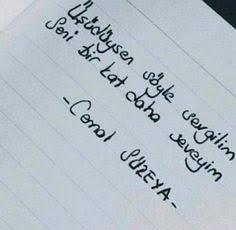 Üşüdüysen söyle sevgilim
Seni bir kat daha seveyim
-Cemal SÜREYA-